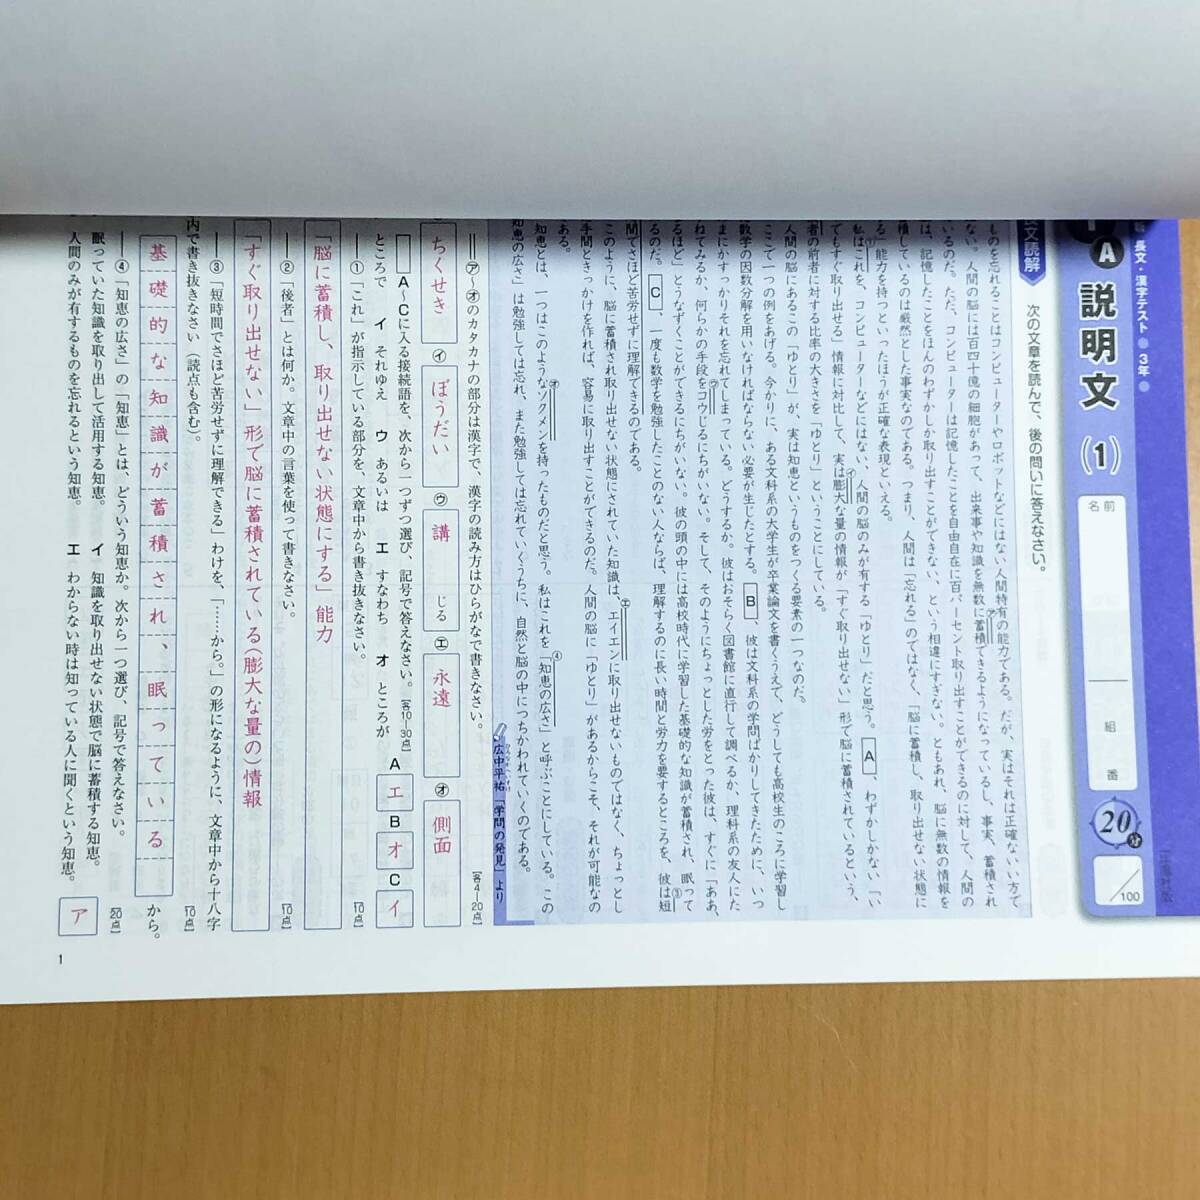 長文・漢字テスト●3年●
A 説明文(1)
名前
組
番
20分
/100
正進社版
文読解
次の文章を読んで、後の問いに答えなさい。
ものを忘れることはコンピューターやロボットなどにはない人間特有の能力である。だが、実はそれは正確ない方で
ない。人間の脳には百四十億の細胞があって、出来事や知識を無数に蓄積できるようになっているし、事実、蓄積され
いるのだ。ただ、コンピューターは記憶したことを自由自在に百パーセント取り出すことができるのに対して、人間の
は、記憶したことをほんのわずかしか取り出すことができない、という相違にすぎない。ともあれ、脳に無数の情報を
積しているのは厳然とした事実なのである。つまり、人間は「忘れる」のではなく、「脳に蓄積し、取り出せない状態に
る」能力を持つといったほうが正確な表現といえる。
私は①これを、コンピューターなどにはない、人間の脳のみが有する「ゆとり」だと思う。A、わずかしかない「い
でもすぐ取り出せる」情報に対比して、実は膨大な量の情報が「すぐ取り出せない」形で脳に蓄積されているという、
者の前者に対する比率の大きさを「ゆとり」ということにしている。
人間の脳にあるこの「ゆとり」が、実は知恵というものをつくる要素の一つなのだ。
ここで一つの例をあげる。今かりに、ある文科系の大学生が卒業論文を書くうえで、どうしても高校生のころに学習し
数学の因数分解を用いなければならない必要が生じたとする。B、彼は文科系の学問ばかりしてきたために、いつ
まにかすっかりそれを忘れてしまっている。どうするか。彼はおそらく図書館に直行して調べるか、理科系の友人にた
ねてみるか、何らかの手段をコウじるにちがいない。そして、そのようにちょっとした労をとった彼は、すぐに「ああ、
るほど」とうなずくことができるにちがいない。彼の頭の中には高校時代に学習した基礎的な知識が蓄積され、眠って
るのだ。C、一度も数学を勉強したことのない人ならば、理解するのに長い時間と労力を要するところを、彼は③短
間でさほど苦労せずに理解できるのである。
このように、脳に蓄積され取り出せない状態にされていた知識は、エイエンに取り出せないものではなく、ちょっとし
手間ときっかけを作れば、容易に取り出すことができるのだ。人間の脳に「ゆとり」があるからこそ、それが可能なの
ある。
知恵とは、一つはこのようなソクメンを持ったものだと思う。私はこれを「④知恵の広さ」と呼ぶことにしている。この
知恵の広さ」は勉強しては忘れ、また勉強しては忘れていくうちに、自然と脳の中につちかわれていくのである。
広中平祐「学問の発見」より
㋐~㋔のカタカナの部分は漢字で、漢字の読み方はひらがなで書きなさい。
[各4-20点]
ちくせき
㋑ ぼうだい
㋒ 講 じる
㋓ 永遠
㋔ 側面
A~Cに入る接続語を、次から一つずつ選び、記号で答えなさい。[各10-30点]
ところで イ それゆえ ウ あるいは エ すなわち オ ところが
A エ B オ C イ
①「これ」が指示している部分を、文章中から書き抜きなさい。
[10点]
「脳に蓄積し、取り出せない状態にする」能力
②「後者」とは何か。文章中の言葉を使って書きなさい。
[10点]
「すぐ取り出せない」形で脳に蓄積されている(膨大な量の)情報
③「短時間でさほど苦労せずに理解できる」わけを、「……から。」の形になるように、文章中から十八字
内で書き抜きなさい(読点も含む)。
[10点]
基礎的な知識が蓄積され、眠っている
から。
④「知恵の広さ」の「知恵」とは、どういう知恵か。次から一つ選び、記号で答えなさい。
[20点]
眠っていた知識を取り出して活用する知恵。 イ 知識を取り出せない状態で脳に蓄積する知恵。
人間のみが有するものを忘れるという知恵。 エ わからない時は知っている人に聞くという知恵。
ア
1